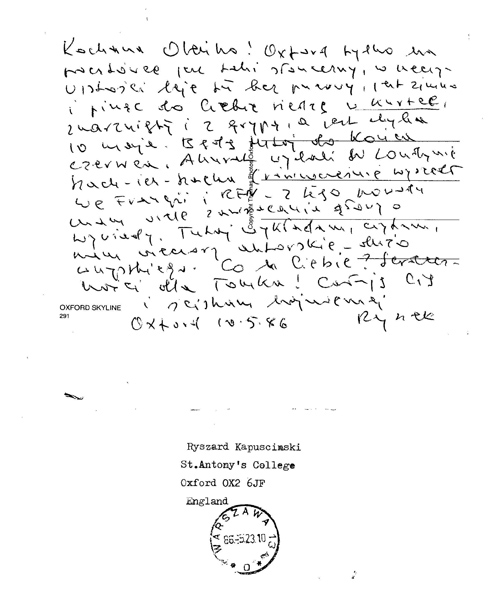 Kochana Oleńko! Oxford tylko na
pocztówce jest taki słoneczny, w rzeczy-
wistości leje tu bez przerwy, jest zimno
i pisząc do Ciebie siedzę w kurtce,
zmarznięty i z grypą, a jest chyba
10 maja. Będę tutaj do końca
czerwca. Akurat wydali w Londynie
Szach-in-szacha (równocześnie wyszedł
we Francji i RFN - z tego powodu
mam wiele zawracania głowy o
wywiady. Tutaj wykładam, czytam,
mam wieczory autorskie - dużo
wszystkiego. Co u Ciebie? Serdecz-
ności dla Tomka! Całuję Cię
i ściskam najmocniej
Oxford 10.5.86 Rysiek
OXFORD SKYLINE
291
Copyright Thomas
Ryszard Kapuscinski
St.Antony's College
Oxford OX2 6JF
England
WARSZAWA 13
86-5.23.10